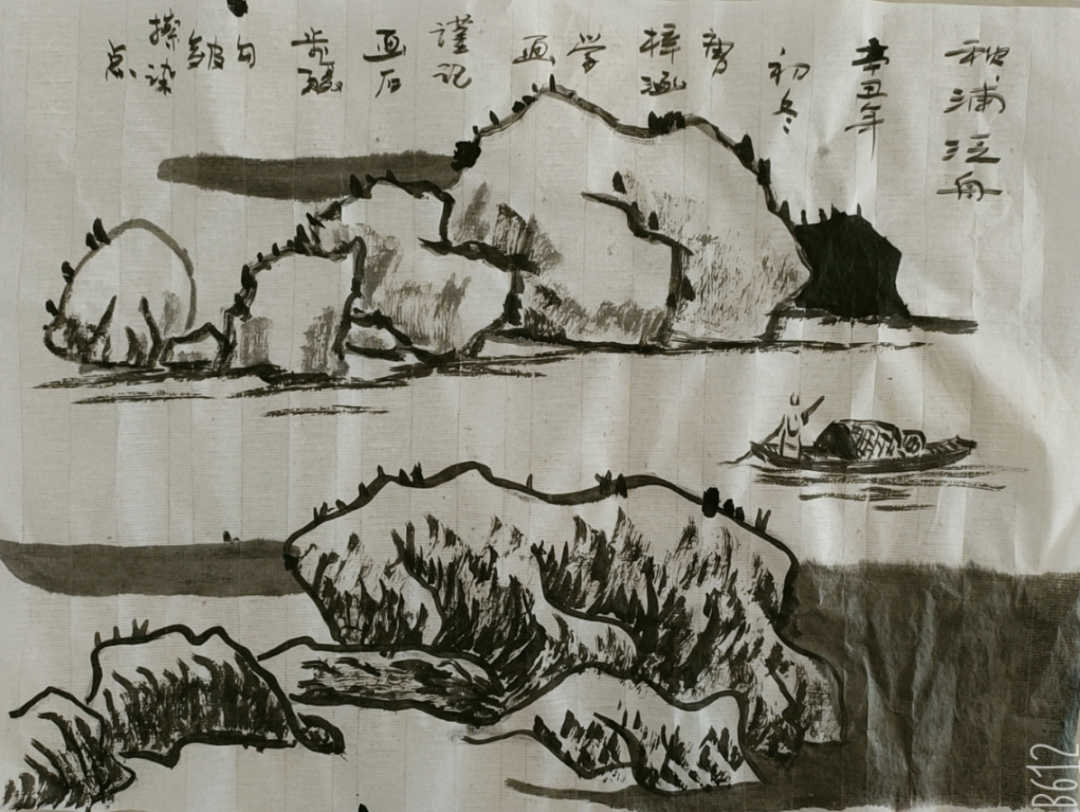 秋浦泛舟
辛丑年
初冬
曹
梓涵
学
画
谨记
画石
步骤
勾
皴
擦染
点
B612